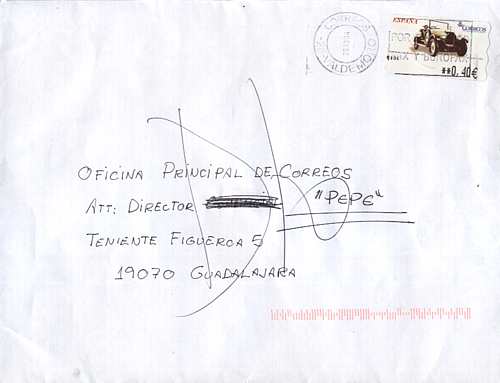 CORREOS
VALDEMORO
ESPAÑA
CORREOS
POR
Y BUROFAX
**0,40€
OFICINA PRINCIPAL DE CORREOS
ATT: DIRECTOR "PEPE"
TENIENTE FIGUEROA 5
19070 GUADALAJARA